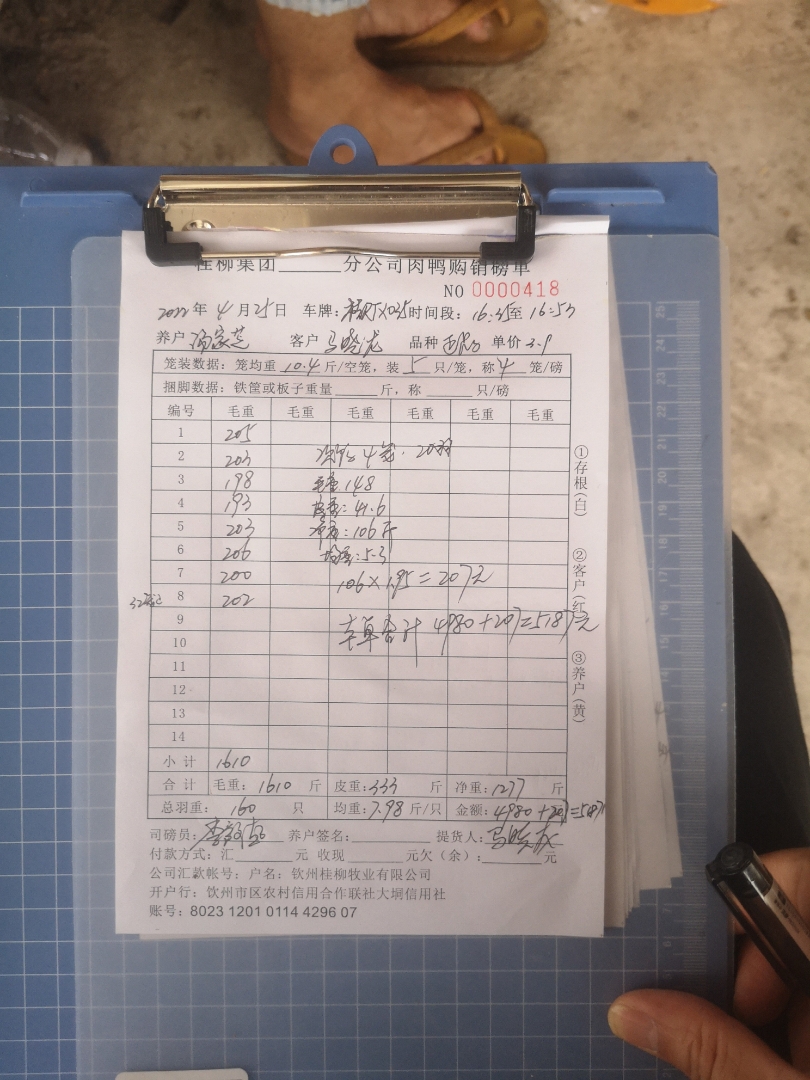 桂柳集团______分公司肉鸭购销磅单
NO 0000418
2022年 4月25日 车牌: 时间段: 16:35至 16:53
养户 汤家芝 客户 马晓龙 品种 单价 3.9
笼装数据: 笼均重 10.4 斤/空笼, 装 5 只/笼, 称 4 笼/磅
捆脚数据: 铁筐或板子重量______斤, 称______只/磅
编号 毛重 毛重 毛重 毛重 毛重 毛重
1 205
2 203 4笼. 20羽
3 198 毛重: 148
4 193 皮重: 41.6
5 203 净重: 106斤
6 206 均重: 5.3
7 200 106×1.95=207元
8 202
9 车单合计 4980+207=5187元
10
11
12
13
14
小计 1610
合计 毛重: 1610 斤 皮重: 333 斤 净重: 1277 斤
总羽重: 160 只 均重: 7.98 斤/只 金额: 4980+207=5187
司磅员: 养户签名:______ 提货人: 马晓龙
付款方式: 汇______元 收现______元欠(余):______元
公司汇款帐号: 户名: 钦州桂柳牧业有限公司
开户行: 钦州市区农村信用合作联社大垌信用社
账号: 8023 1201 0114 4296 07
①存根(白)
②客户(红)
③养户(黄)